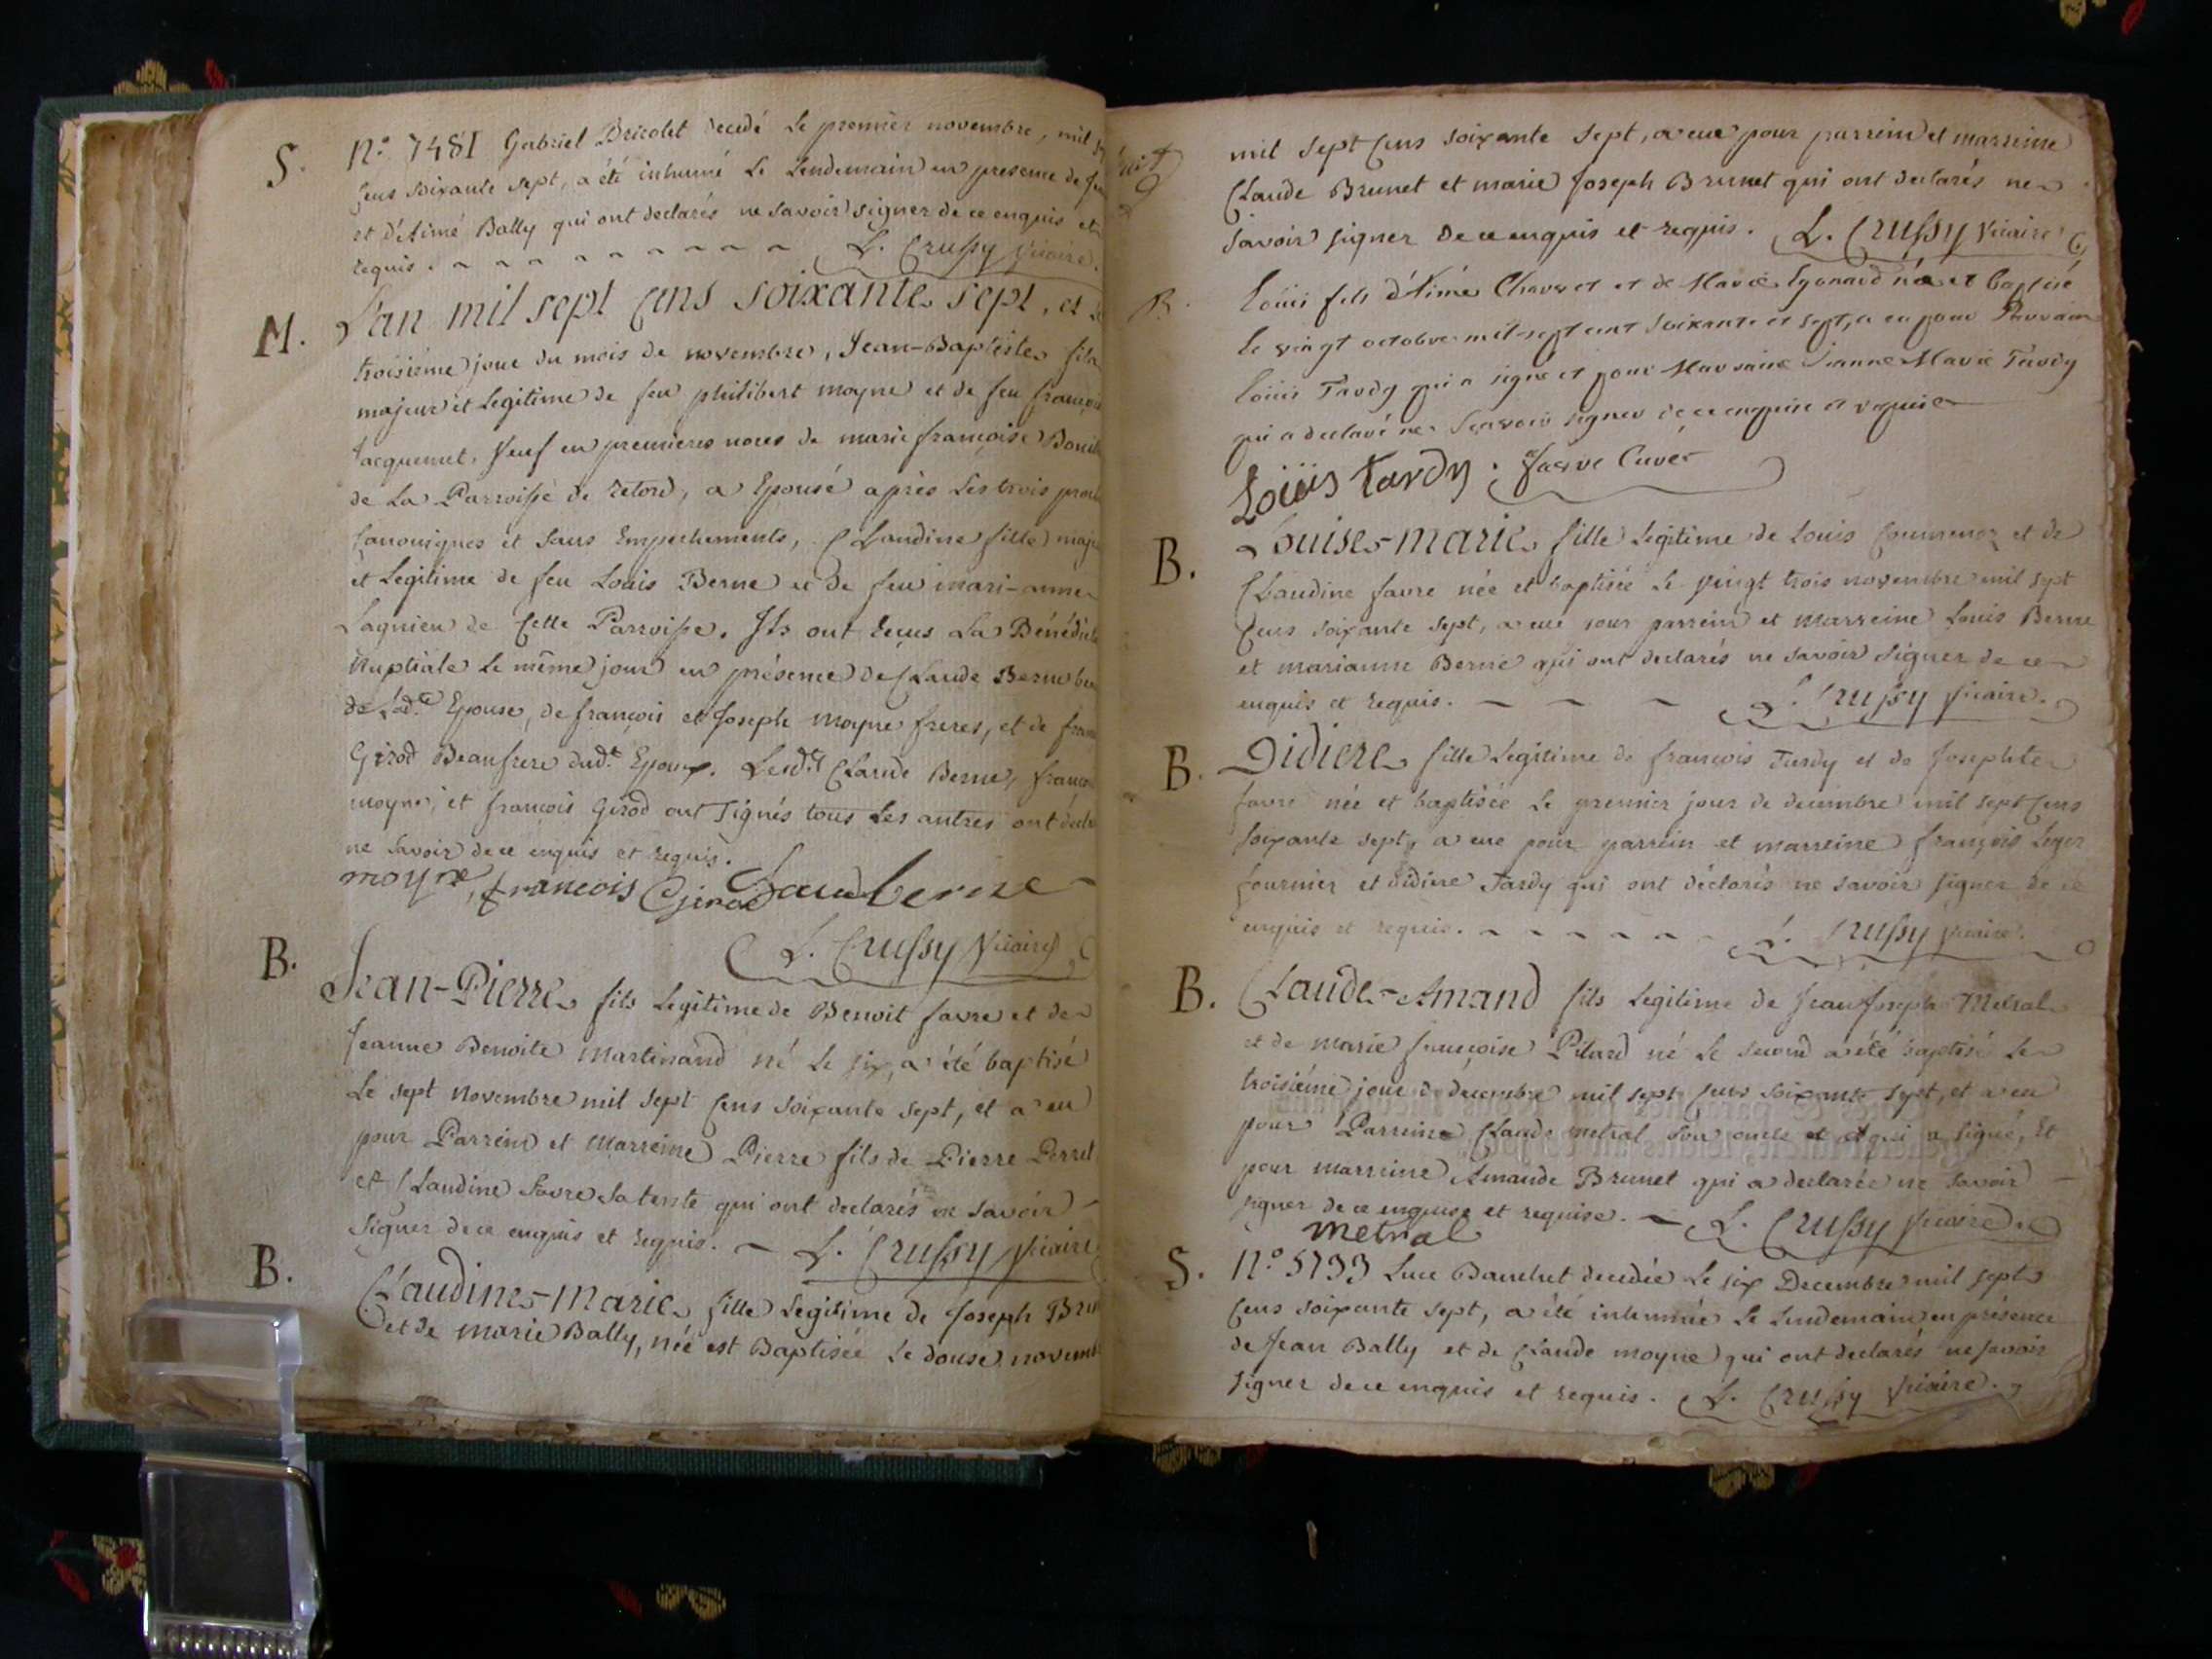 S. N.º 7481 Gabriel Bricolet decedé le premier novembre, mil
cens soixante sept, a été inhumé le lendemain en presence de
et d'Aimé Bally qui ont declarés ne savoir signer de ce enquis et
requis. L. Crussy Vicaire.
M. L'an mil sept cens soixante sept, et le
troisiéme jour du mois de novembre, Jean-Baptiste fils
majeur et legitime de feu philibert moyne et de feu françoise
Jacquemet, Veuf en premieres noces de marie françoise
de la Parroisse de retord, a Epousé après les trois
Canoniques et sans Empechements, Claudine fille
et legitime de feu Louis Berne et de feu mari-anne
Lagnieu de Cette Parroisse. Ils ont reçus la
Nuptiale le même jour en présence de Claude Berne
de lad.te Epouse, de françois et Joseph moyne freres, et de
Girod Beaufrere dud.t Epoux. Lesd.t Claude Berne,
moyne, et françois Girod ont signés tous les autres ont
ne savoir de ce enquis et requis.
moyne, francois Girod Claude berne
L. Crussy Vicaire
B. Jean-Pierre fils legitime de Benoit favre et de
Jeanne Benoite Martinand né le six, a été baptisé
le sept Novembre mil sept cens soixante sept, et a eu
pour Parrein et Marreine Pierre fils de Pierre Perret
et Claudine favre sa tente qui ont declarés ne savoir
signer de ce enquis et requis. L. Crussy Vicaire
B. Claudine-Marie fille legitime de Joseph
et de Marie Bally, née est Baptisée le douse
mil sept cens soixante sept, a eue pour parrein et marreine
Claude Brunet et marie Joseph Brunet qui ont declarés ne
savoir signer de ce enquis et requis. L. Crussy Vicaire
B. Loüis fils d'Aimé et de Marie né et baptisé
le vingt octobre mil sept cent soixante et sept, a eu pour Parrain
loüis Tardy qui a signé et pour Marraine Jeanne Marie Tardy
qui a declaré ne scavoir signer de ce enquise et requise
Loüis tardy. favre Curé
B. Louise-marie fille legitime de Louis et de
Claudine favre née et baptisée le vingt trois novembre mil sept
cens soixante sept, a eue pour parrein et marreine Louis Berne
et marianne Berne qui ont declarés ne savoir signer de ce
enquis et requis. L. Crussy Vicaire.
B. Didiere fille legitime de françois Tardy et de Josephte
favre née et baptisée le premier jour de decembre mil sept cens
soixante sept, a eue pour parrein et marreine françois Leger
fournier et didiere Tardy qui ont déclarés ne savoir signer de ce
enquis et requis. L. Crussy Vicaire.
B. Claude-Amand fils legitime de Jean Joseph Metral
et de marie françoise Pitard né le second a été baptisé le
troisiéme jour de decembre mil sept cens soixante sept, et a eu
pour Parreine Claude metral son oncle et qui a signé, Et
pour marreine Amande Brunet qui a declarée ne savoir
signer de ce enquise et requise. L. Crussy Vicaire.
metral
S. N.º 5733 Luce decedée le six Decembre mil sept
cens soixante sept, a été inhumée le lendemain en présence
de Jean Bally et de Claude moyne qui ont declarés ne savoir
signer de ce enquis et requis. L. Crussy Vicaire.